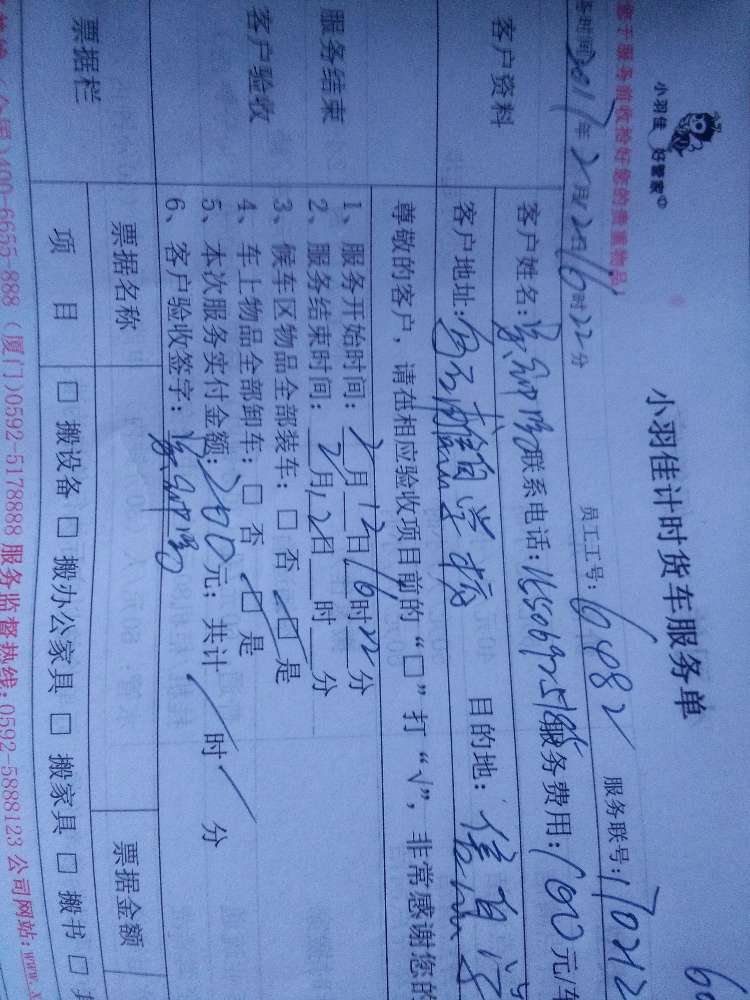 小羽佳 好管家
您于服务前收拾好您的贵重物品！
小羽佳计时货车服务单
务时间2017年2月12日16时22分 员工工号：6482 服务联号：170212
客户资料
客户姓名： 联系电话： 服务费用：100元/车
客户地址： 目的地：
尊敬的客户，请在相应验收项目前的“□”打“√”，非常感谢您的
服务结束
客户验收
1、服务开始时间：2月12日16时22分
2、服务结束时间：2月12日 时 分
3、候车区物品全部装车：□ 否 ☑ 是
4、车上物品全部卸车：□ 否 ☑ 是
5、本次服务实付金额：200元；共计 / 时 / 分
6、客户验收签字：
票据栏 票据名称 票据金额
项 目 □ 搬设备 □ 搬办公家具 □ 搬家具 □ 搬书 □
400-6655-888（厦门）0592-5178888 服务监督热线：0592-5888123 公司网站：www.x